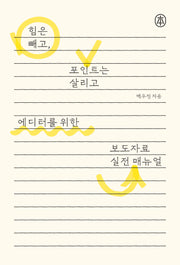 힘은
빼고,
포인트는
살리고
백우성 지음
에디터를 위한
보도자료
실전 매뉴얼